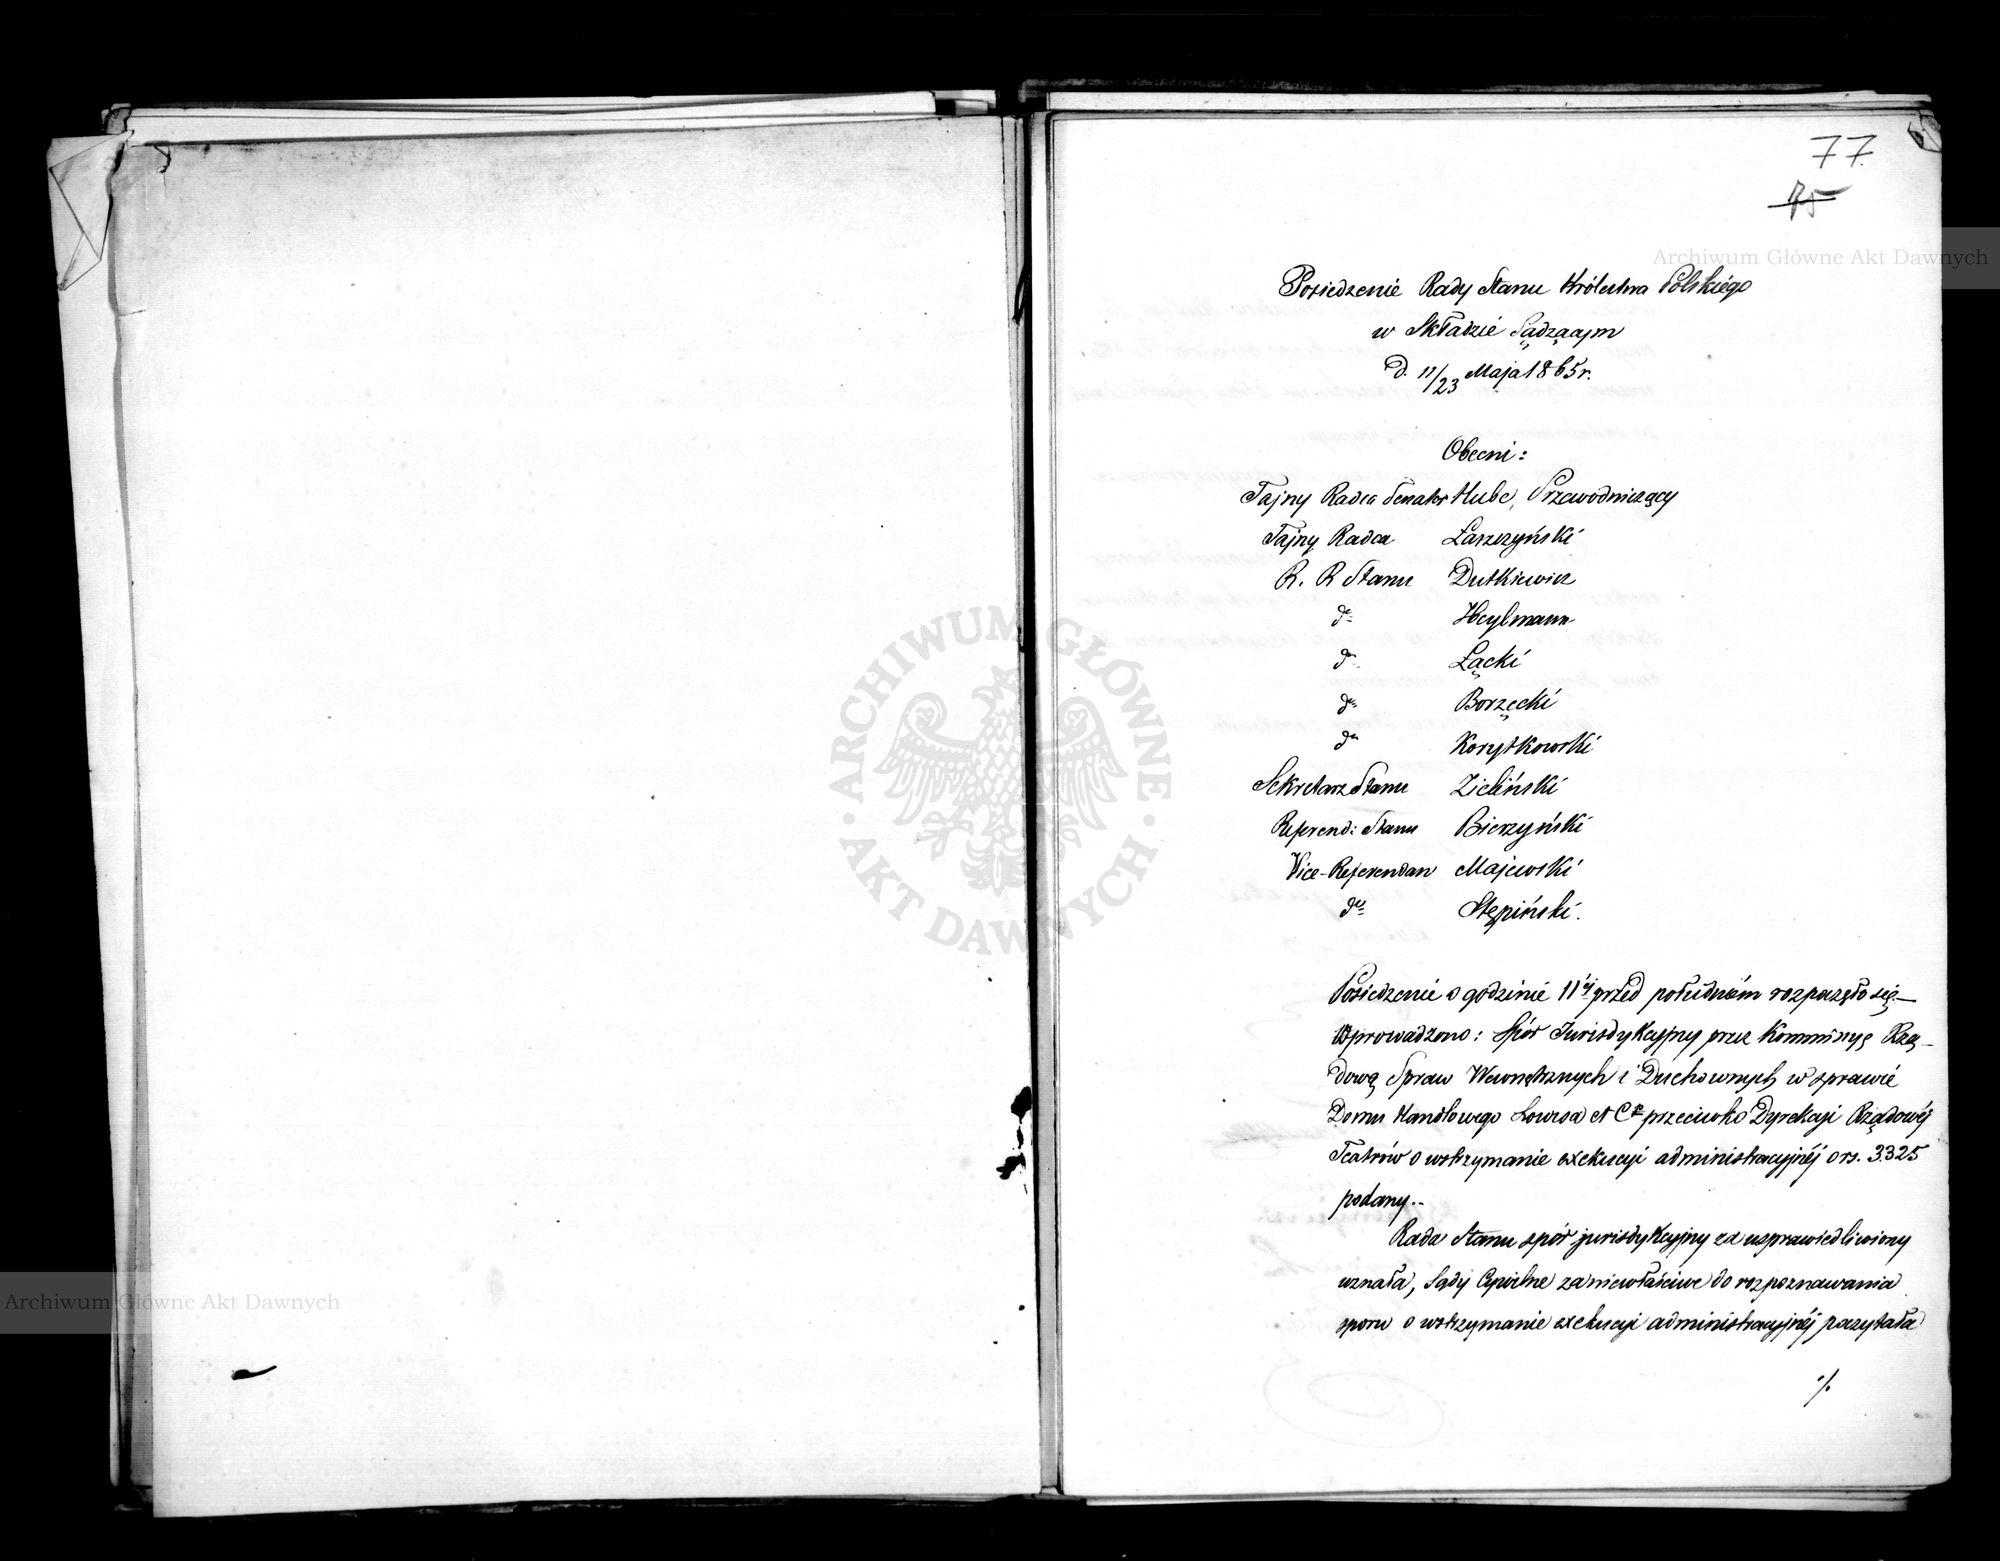 77.
75
Archiwum Główne Akt Dawnych
Posiedzenie Rady Stanu Królestwa Polskiégo
w Składzie Sądzącym
D. 11/23 Maja 1865 r.
Obecni:
Tajny Radca Senator Hube, Przewodniczący
Tajny Radca Łaszczyński
R. R Stanu Dutkiewicz
do Heylmann
do Łącki
do Borzęcki
do Korytkowski
Sekretarz Stanu Zieliński
Referend: Stanu Bierzyński
Vice-Referendarz Majewski
do Stępiński.
Posiedzenie o godzinie 11éj przed południem rozpoczęto się.—
Wprowadzono: Spór Jurisdykcyjny przez Kommissyę Rzą-
dową Spraw Wewnętrznych i Duchownych w sprawie
Domu Handlowego Lowesa et Cie przeciwko Dyrekcyi Rządowéj
Teatrów o wstrzymanie exekucyi administracyjnéj o rs. 3325
podany.-
Rada Stanu spór jurisdykcyjny za usprawiedliwiony
uznała, Sądy Cywilne za niewłaściwe do rozpoznawania
sporu o wstrzymanie exekucyi administracyjnéj poczytała
./.
ARCHIWUM GŁÓWNE AKT DAWNYCH
Archiwum Główne Akt Dawnych